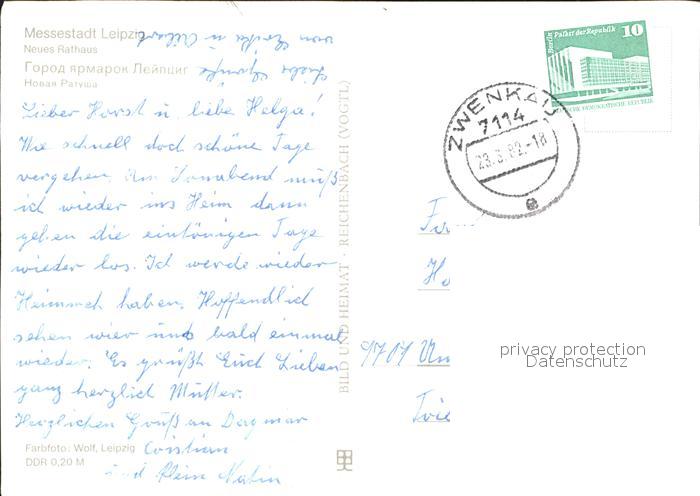 Messestadt Leipzig
Neues Rathaus
Город ярмарок Лейпциг
Новая Ратуша
Lieber Horst u. liebe Helga!
Wie schnell doch schöne Tage
vergehen. Am Sonabend muß
ich wieder ins Heim dann
gehen die eintönigen Tage
wieder los. Ich werde wieder
Heimweh haben. Hoffendlich
sehen wier uns bald einmal
wieder. Es grüßt Euch Lieben
ganz herzlich Mutter.
Herzlichen Gruß an Dagmar
Cristian
und klein
Farbfoto: Wolf, Leipzig
DDR 0,20 M
BILD UND HEIMAT · REICHENBACH (VOGTL)
Berlin Palast der Republik 10
DEUTSCHE DEMOKRATISCHE REPUBLIK
ZWENKAU
7114
23.3.82.-18
privacy protection
Datenschutz